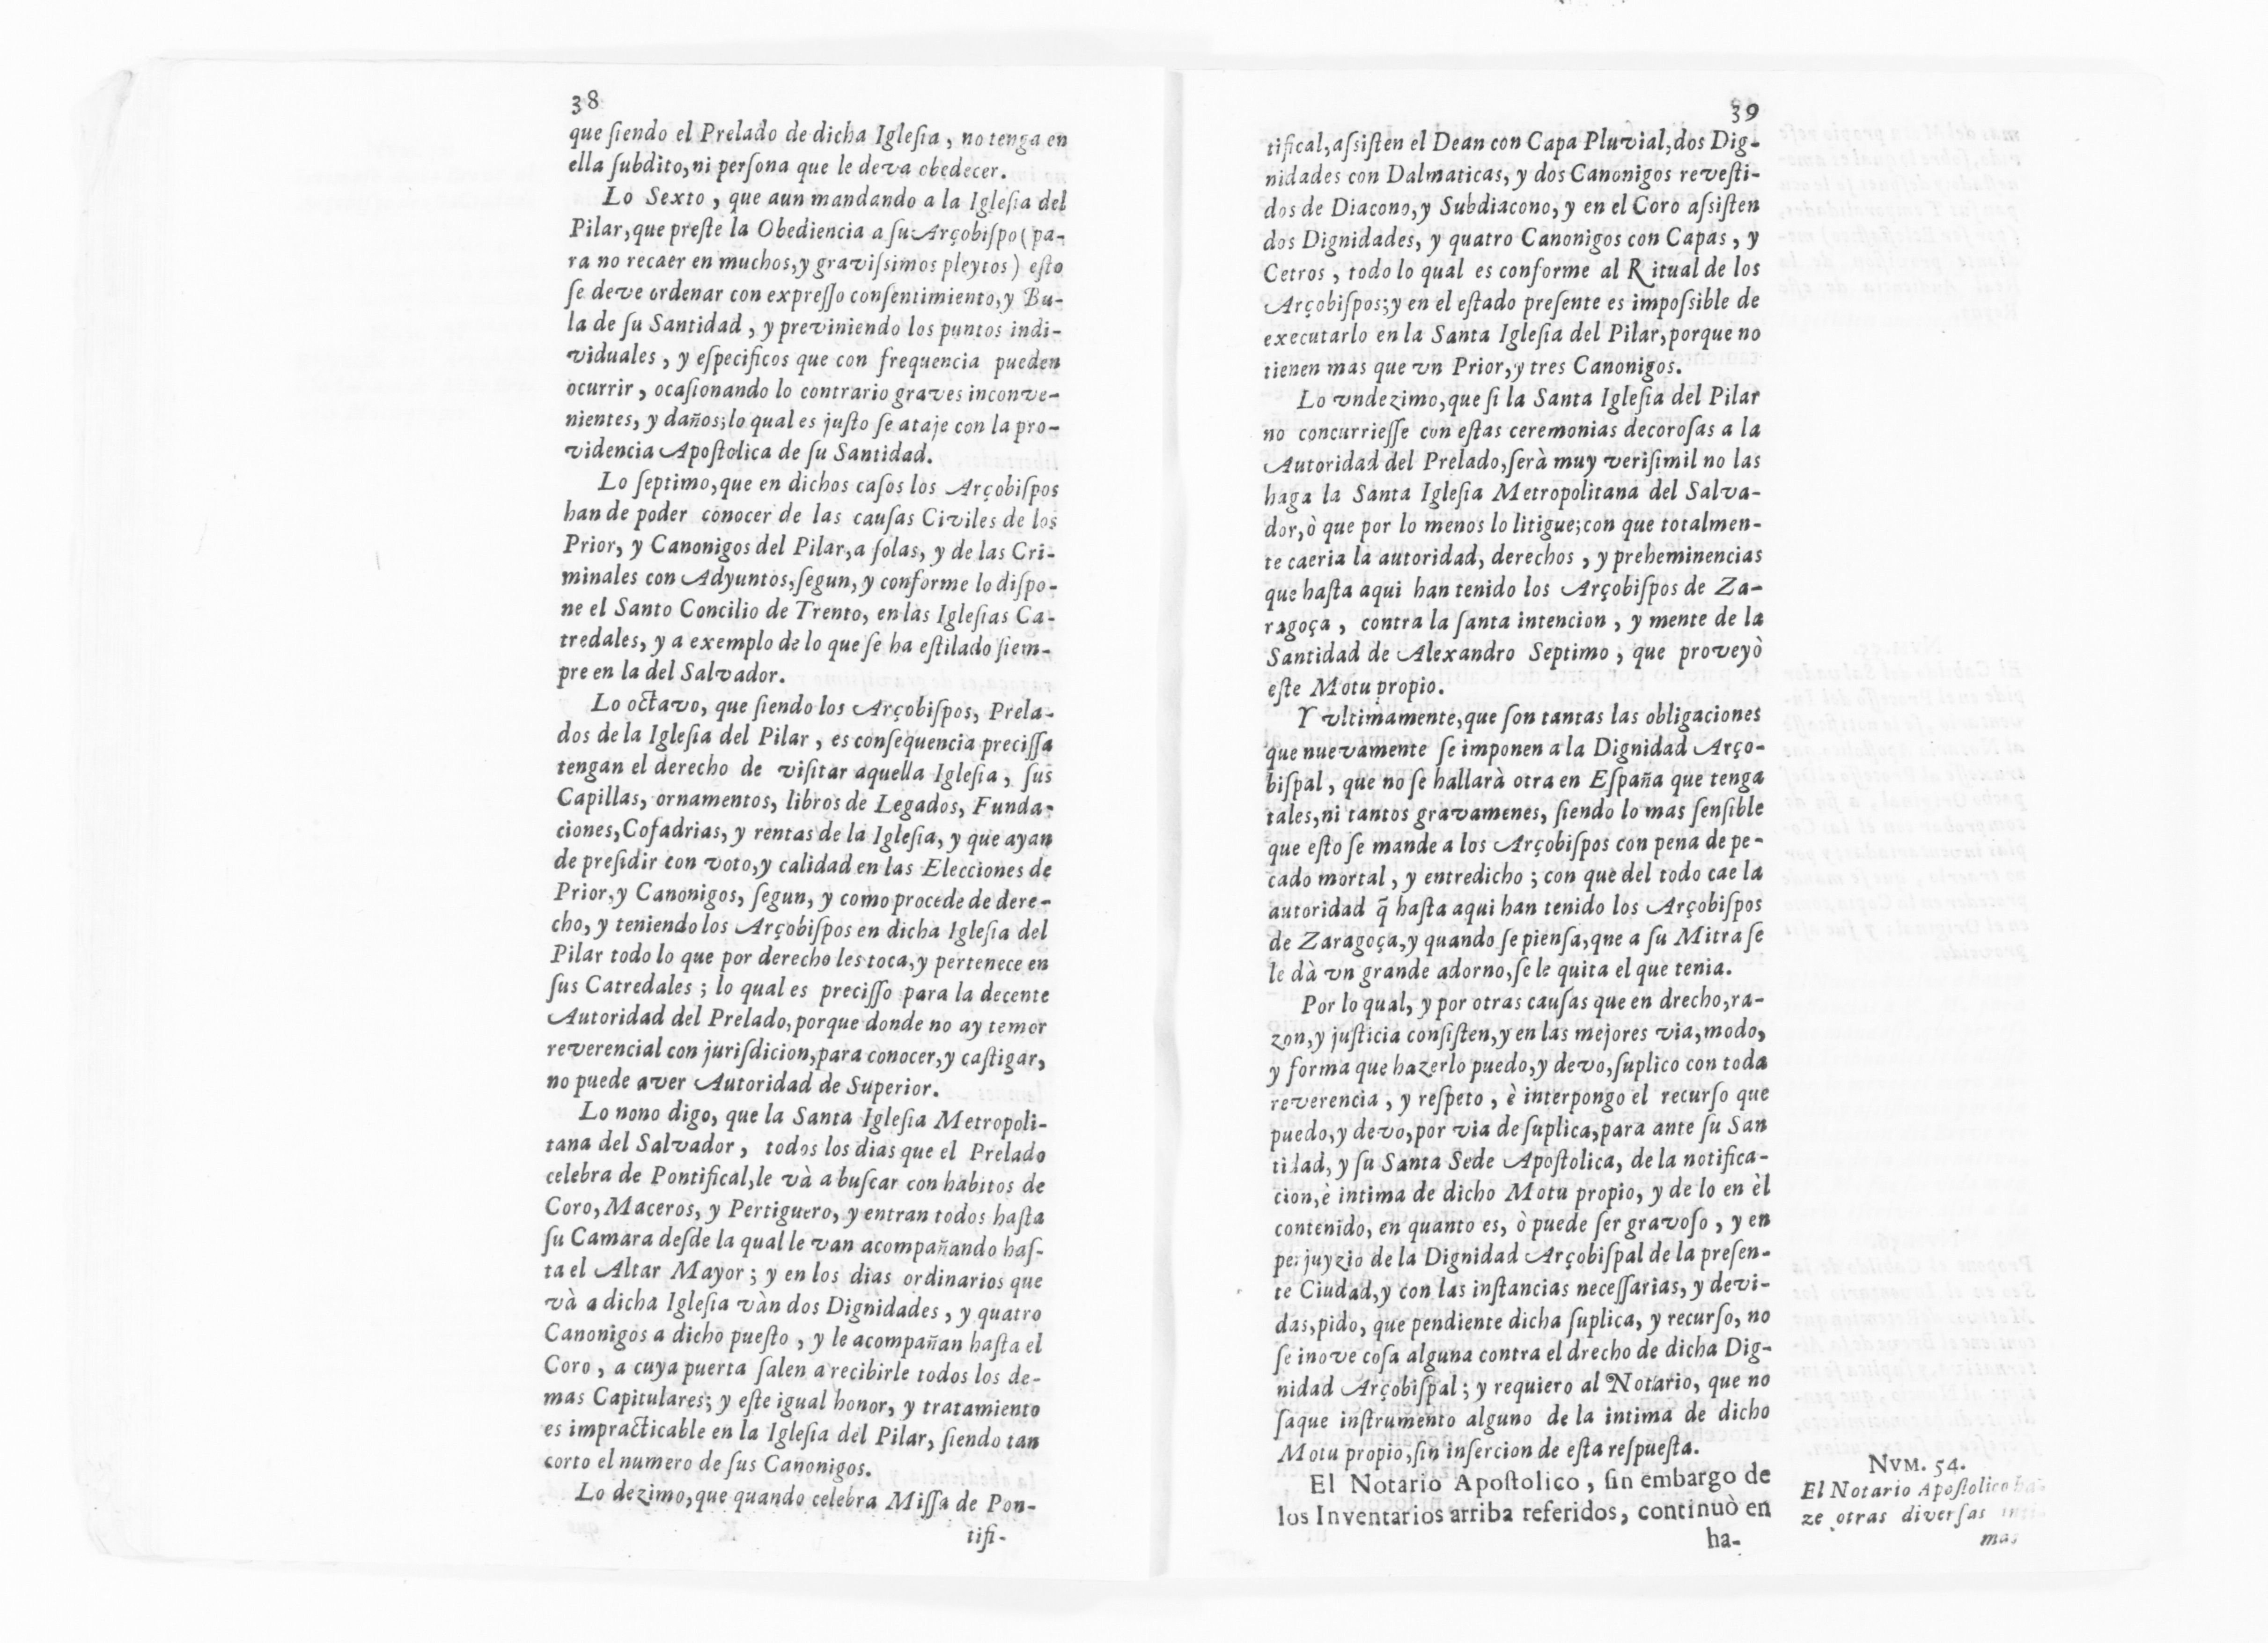 38
que ſiendo el Prelado de dicha Igleſia, no tenga en
ella ſubdito, ni perſona que le deva obedecer.
Lo Sexto, que aun mandando a la Igleſia del
Pilar, que preſte la Obediencia a ſu Arçobiſpo (pa-
ra no recaer en muchos, y graviſsimos pleytos) eſto
ſe deve ordenar con expreſſo conſentimiento, y Bu-
la de ſu Santidad, y previniendo los puntos indi-
viduales, y eſpecificos que con frequencia pueden
ocurrir, ocaſionando lo contrario graves inconve-
nientes, y daños; lo qual es juſto ſe ataje con la pro-
videncia Apoſtolica de ſu Santidad.
Lo ſeptimo, que en dichos caſos los Arçobiſpos
han de poder conocer de las cauſas Civiles de los
Prior, y Canonigos del Pilar, a ſolas, y de las Cri-
minales con Adyuntos, ſegun, y conforme lo diſpo-
ne el Santo Concilio de Trento, en las Igleſias Ca-
tredales, y a exemplo de lo que ſe ha eſtilado ſiem-
pre en la del Salvador.
Lo octavo, que ſiendo los Arçobiſpos, Prela-
dos de la Igleſia del Pilar, es conſequencia preciſſa
tengan el derecho de viſitar aquella Igleſia, ſus
Capillas, ornamentos, libros de Legados, Funda-
ciones, Cofadrias, y rentas de la Igleſia, y que ayan
de preſidir con voto, y calidad en las Elecciones de
Prior, y Canonigos, ſegun, y como procede de dere-
cho, y teniendo los Arçobiſpos en dicha Igleſia del
Pilar todo lo que por derecho les toca, y pertenece en
ſus Catredales; lo qual es preciſſo para la decente
Autoridad del Prelado, porque donde no ay temor
reverencial con juriſdicion, para conocer, y caſtigar,
no puede aver Autoridad de Superior.
Lo nono digo, que la Santa Igleſia Metropoli-
tana del Salvador, todos los dias que el Prelado
celebra de Pontifical, le và a buſcar con habitos de
Coro, Maceros, y Pertiguero, y entran todos haſta
ſu Camara deſde la qual le van acompañando haſ-
ta el Altar Mayor; y en los dias ordinarios que
và a dicha Igleſia vàn dos Dignidades, y quatro
Canonigos a dicho pueſto, y le acompañan haſta el
Coro, a cuya puerta ſalen a recibirle todos los de-
mas Capitulares; y eſte igual honor, y tratamiento
es impracticable en la Igleſia del Pilar, ſiendo tan
corto el numero de ſus Canonigos.
Lo dezimo, que quando celebra Miſſa de Pon-
tifi-
39
tifical, aſsiſten el Dean con Capa Pluvial, dos Dig-
nidades con Dalmaticas, y dos Canonigos reveſti-
dos de Diacono, y Subdiacono, y en el Coro aſsiſten
dos Dignidades, y quatro Canonigos con Capas, y
Cetros, todo lo qual es conforme al Ritual de los
Arçobiſpos; y en el eſtado preſente es impoſsible de
executarlo en la Santa Igleſia del Pilar, porque no
tienen mas que vn Prior, y tres Canonigos.
Lo vndezimo, que ſi la Santa Igleſia del Pilar
no concurrieſſe con eſtas ceremonias decoroſas a la
Autoridad del Prelado, ſerà muy veriſimil no las
haga la Santa Igleſia Metropolitana del Salva-
dor, ò que por lo menos lo litigue; con que totalmen-
te caeria la autoridad, derechos, y preheminencias
que haſta aqui han tenido los Arçobiſpos de Za-
ragoça, contra la ſanta intencion, y mente de la
Santidad de Alexandro Septimo, que proveyò
eſte Motu propio.
Y vltimamente, que ſon tantas las obligaciones
que nuevamente ſe imponen a la Dignidad Arço-
biſpal, que no ſe hallarà otra en Eſpaña que tenga
tales, ni tantos gravamenes, ſiendo lo mas ſenſible
que eſto ſe mande a los Arçobiſpos con pena de pe-
cado mortal, y entredicho; con que del todo cae la
autoridad q̃ haſta aqui han tenido los Arçobiſpos
de Zaragoça, y quando ſe pienſa, qne a ſu Mitra ſe
le dà vn grande adorno, ſe le quita el que tenia.
Por lo qual, y por otras cauſas que en drecho, ra-
zon, y juſticia conſiſten, y en las mejores via, modo,
y forma que hazerlo puedo, y devo, ſuplico con toda
reverencia, y reſpeto, è interpongo el recurſo que
puedo, y devo, por via de ſuplica, para ante ſu San
tidad, y ſu Santa Sede Apoſtolica, de la notifica-
cion, è intima de dicho Motu propio, y de lo en èl
contenido, en quanto es, ò puede ſer gravoſo, y en
perjuyzio de la Dignidad Arçobiſpal de la preſen-
te Ciudad, y con las inſtancias neceſſarias, y devi-
das, pido, que pendiente dicha ſuplica, y recurſo, no
ſe inove coſa alguna contra el drecho de dicha Dig-
nidad Arçobiſpal; y requiero al Notario, que no
ſaque inſtrumento alguno de la intima de dicho
Motu propio, ſin inſercion de eſta reſpueſta.
El Notario Apoſtolico, ſin embargo de
los Inventarios arriba referidos, continuò en
ha-
NVM. 54.
El Notario Apoſtolico ha-
ze otras diverſas inti-
mas